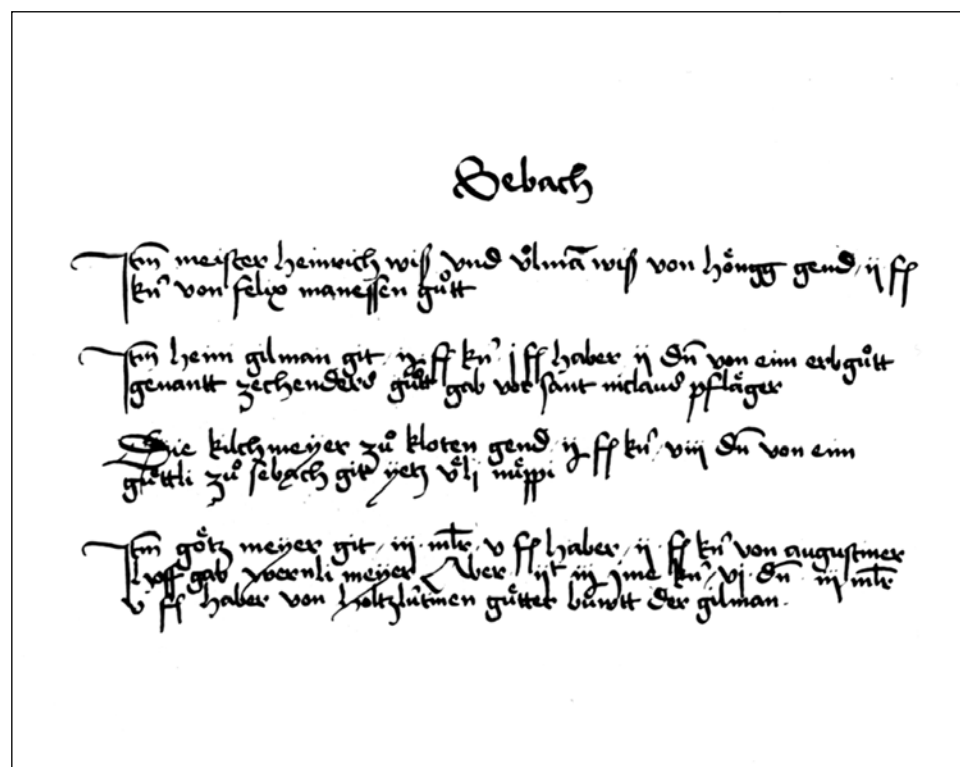 Sebach
Itm̄ meister heinrich wiß vnd ůlmā wiß von höngg gend ij ff
kn̄ von felix manessen gůtt
Itm̄ heini gilman git ff kn̄ j ff haber ij dn̄ von eim erbgůtt
genantt zechenders gůtt gab vor sant niclaus pfläger
Die kilchmeyer zů kloten gend ff kn̄ viij dn̄ von eim
gůttli zů sebach git yetz ůli müppi
Itm̄ götz meyer git iij mlr v ff haber ij ff kn̄ von augustiner
gab wernli meyer Aber kn̄ vj dn̄ iij mlr
v ff haber von gütter buwtt der gilman.